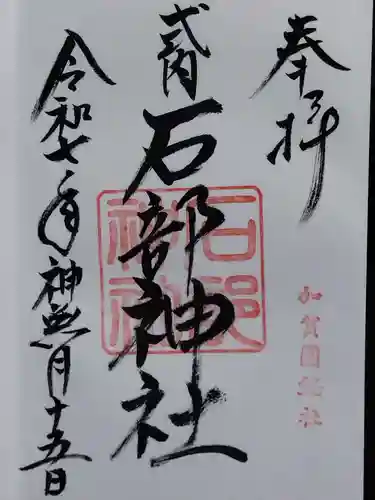 奉拝
加賀國総社
式内
石部神社
石部神社
令和七年神無月十五日